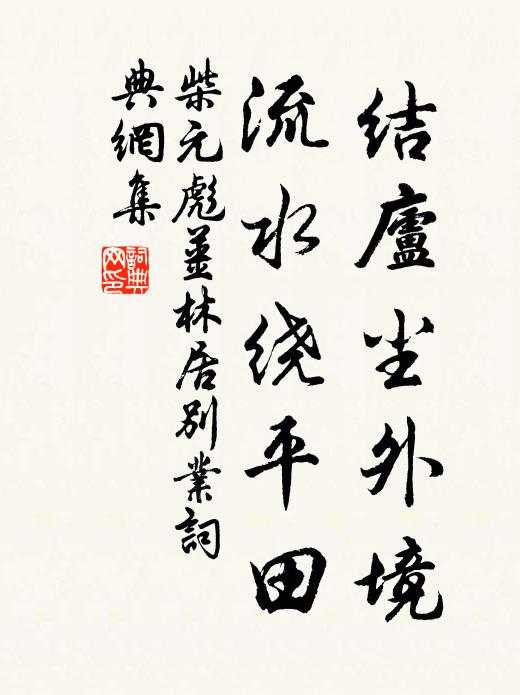 结廬尘外境
流水绕平田
柴元彪薑林居別業詞
典網集
詞典
网印